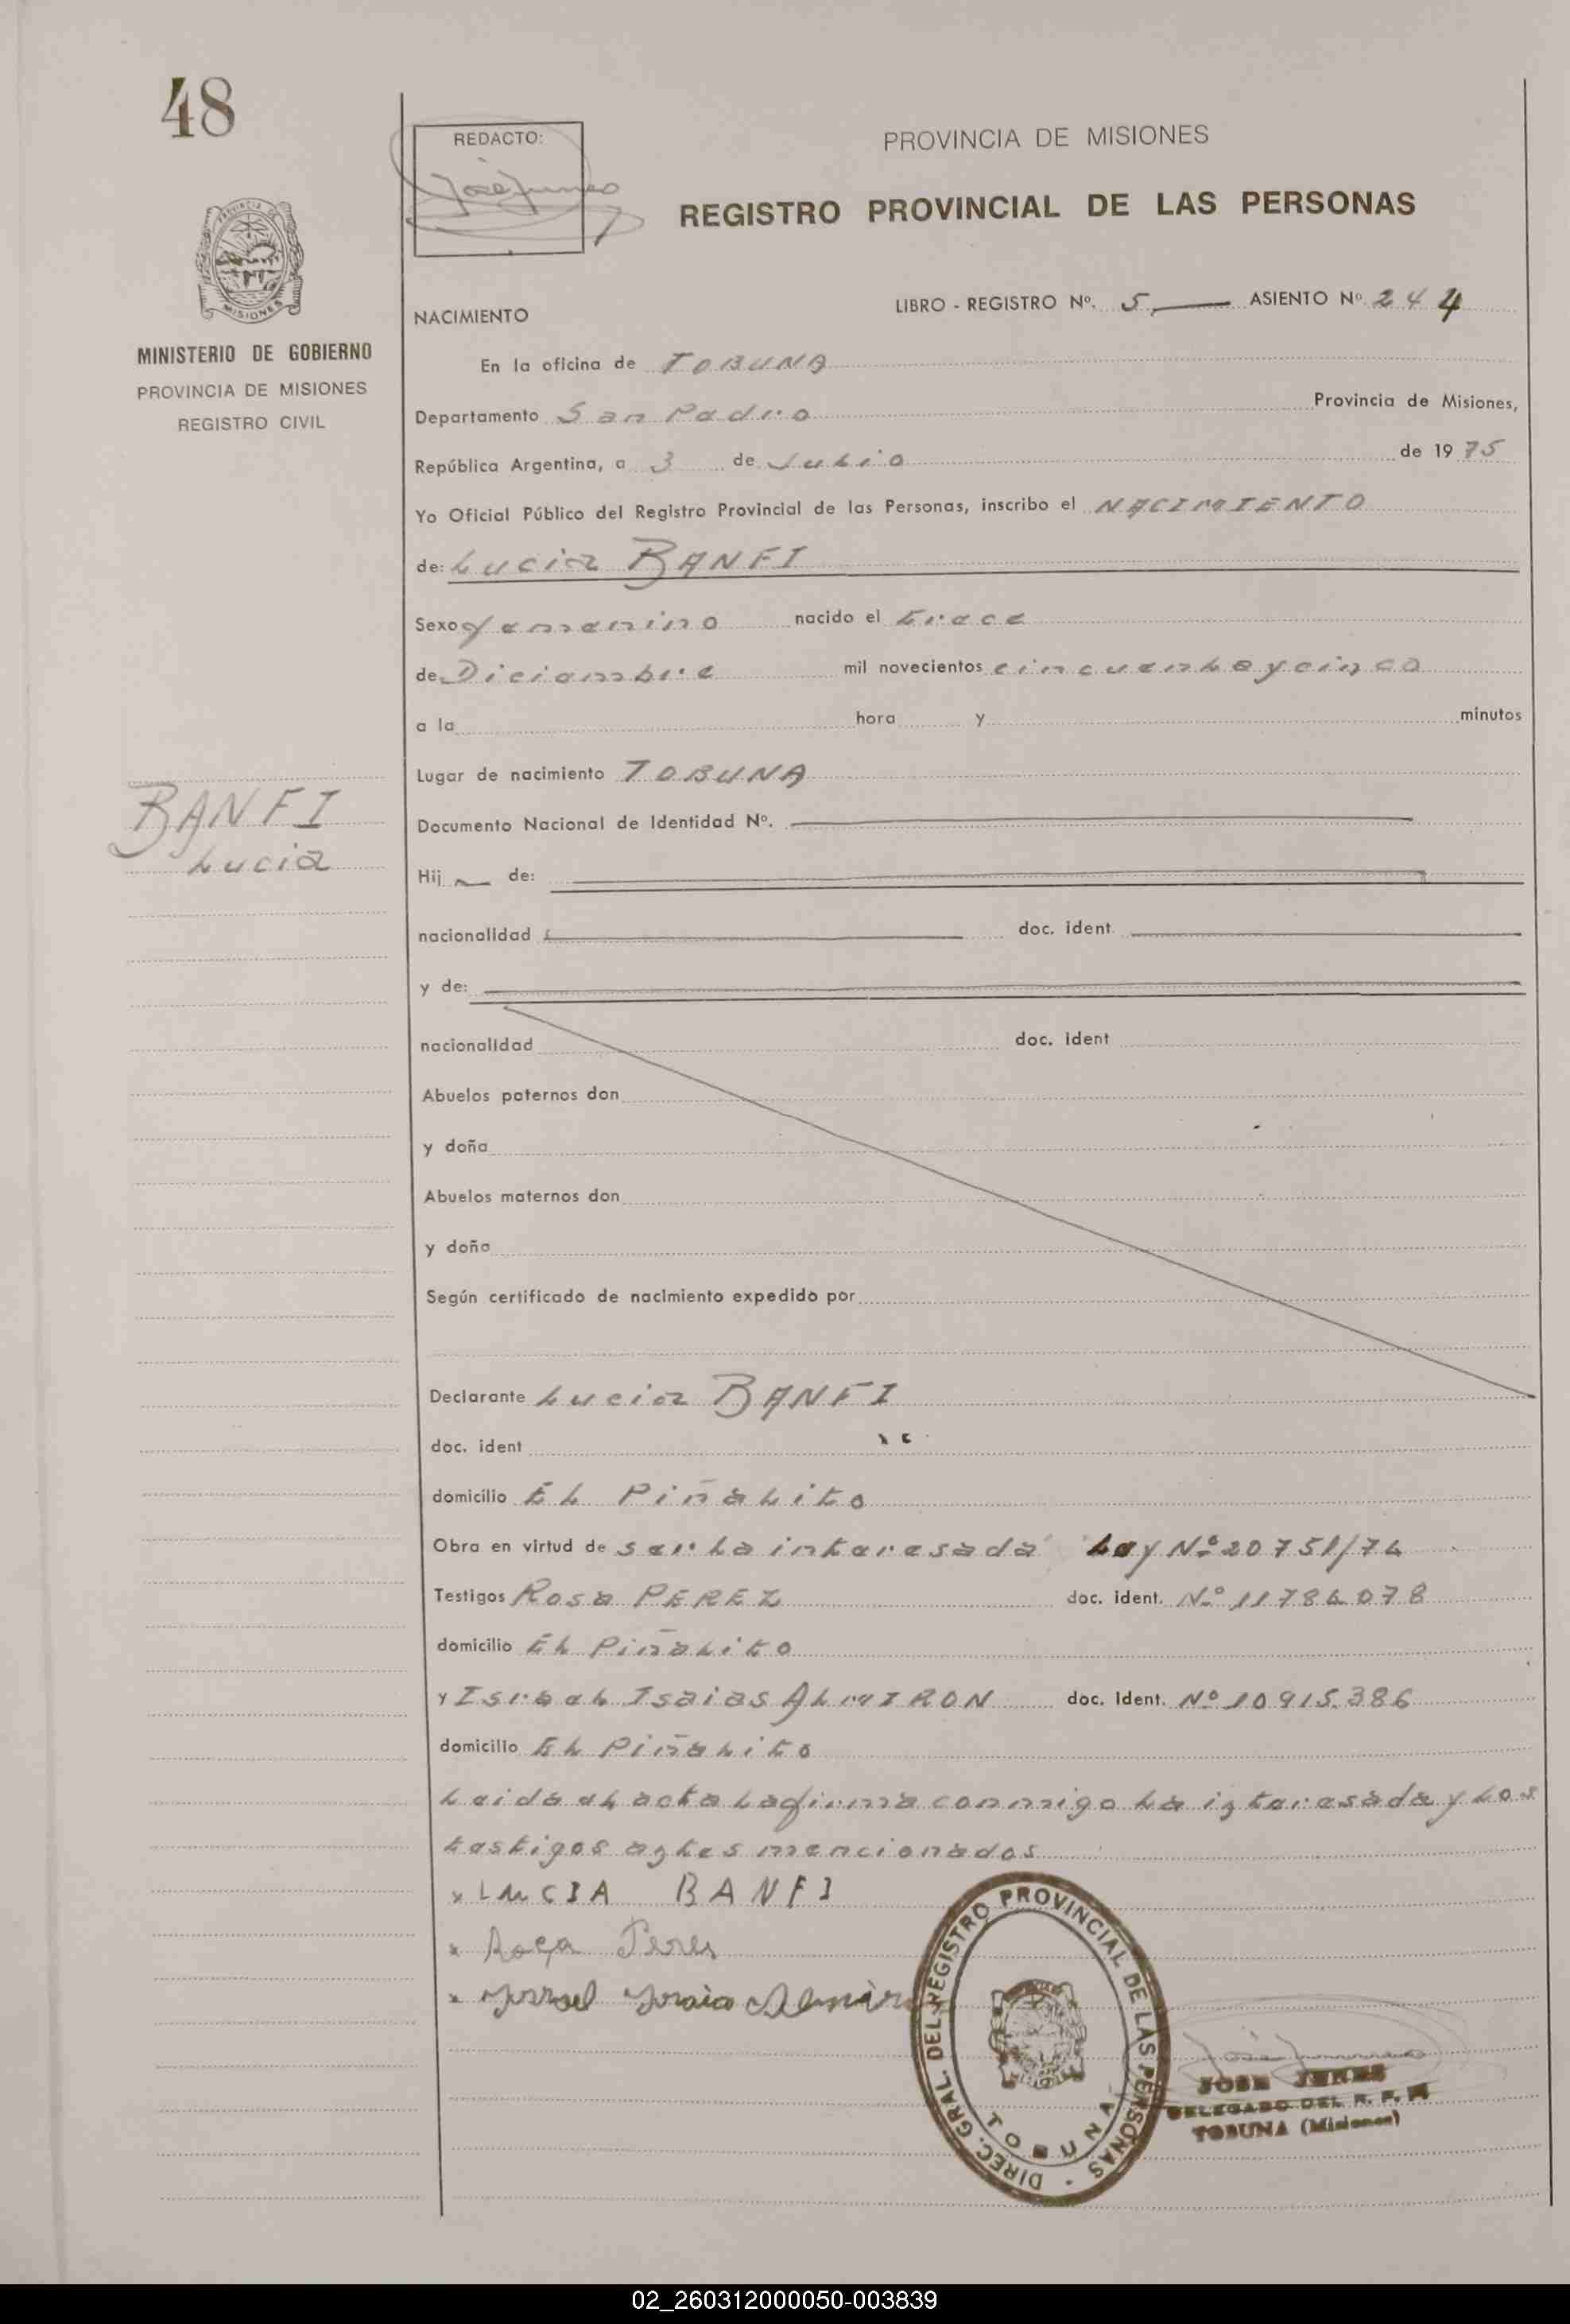 48
REDACTO:
PROVINCIA DE MISIONES
REGISTRO PROVINCIAL DE LAS PERSONAS
PROVINCIA DE
MISIONES
MINISTERIO DE GOBIERNO
PROVINCIA DE MISIONES
REGISTRO CIVIL
LIBRO - REGISTRO Nº. 5 ASIENTO Nº 244
NACIMIENTO
En la oficina de TOBUNA
Departamento San Pedro Provincia de Misiones,
República Argentina, a 3 de Julio de 1975
Yo Oficial Público del Registro Provincial de las Personas, inscribo el NACIMIENTO
de: Lucia BANFI
Sexo femenino nacido el trece
de Diciembre mil novecientos cincuenta y cinco
a la hora y minutos
Lugar de nacimiento TOBUNA
BANFI
Lucia
Documento Nacional de Identidad Nº.
Hij de:
nacionalidad doc. ident
y de:
nacionalidad doc. ident
Abuelos paternos don
y doña
Abuelos maternos don
y doña
Según certificado de nacimiento expedido por
Declarante Lucia BANFI
doc. ident
domicilio El Piñalito
Obra en virtud de ser la interesada Ley Nº 20751/74
Testigos Rosa PEREZ doc. ident. Nº 11786078
domicilio El Piñalito
y Israel Isaias AlmIRON doc. Ident. Nº 10915.386
domicilio El Piñalito
Leida el acta la firma conmigo la interesada y los
testigos antes mencionados
x LuCIA BANFI
x Roça Peres
x Israel Isaias Almiron
DIREC. GRAL. DEL REGISTRO PROVINCIAL DE LAS PERSONAS -
TOBUNA
JOSE JUNES
DELEGADO DEL R. P. P.
TOBUNA (Misiones)
02_260312000050-003839